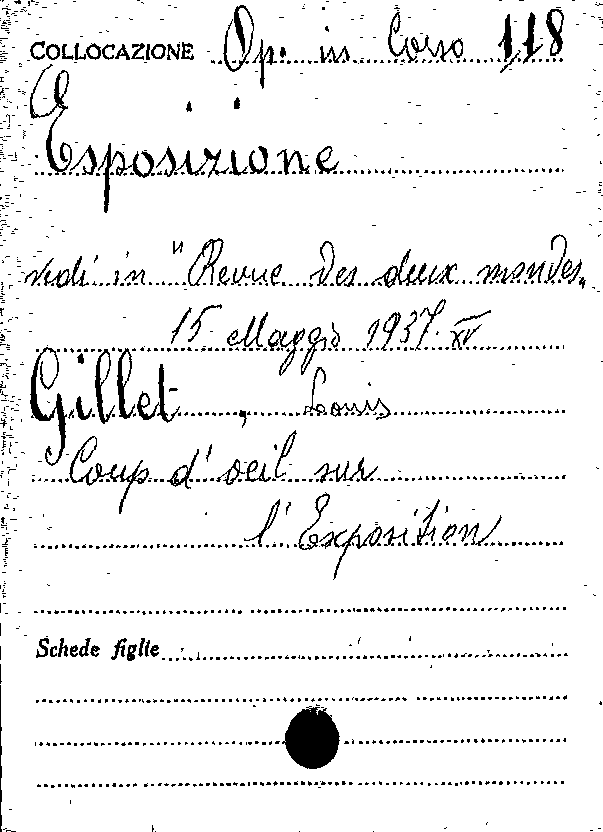 COLLOCAZIONE Op. in Corso 118
Esposizione
vedi in "Revue des deux mondes"
15 Maggio 1937. XV
Gillet, Louis
Coup d'oeil sur
l'Exposition
Schede figlie